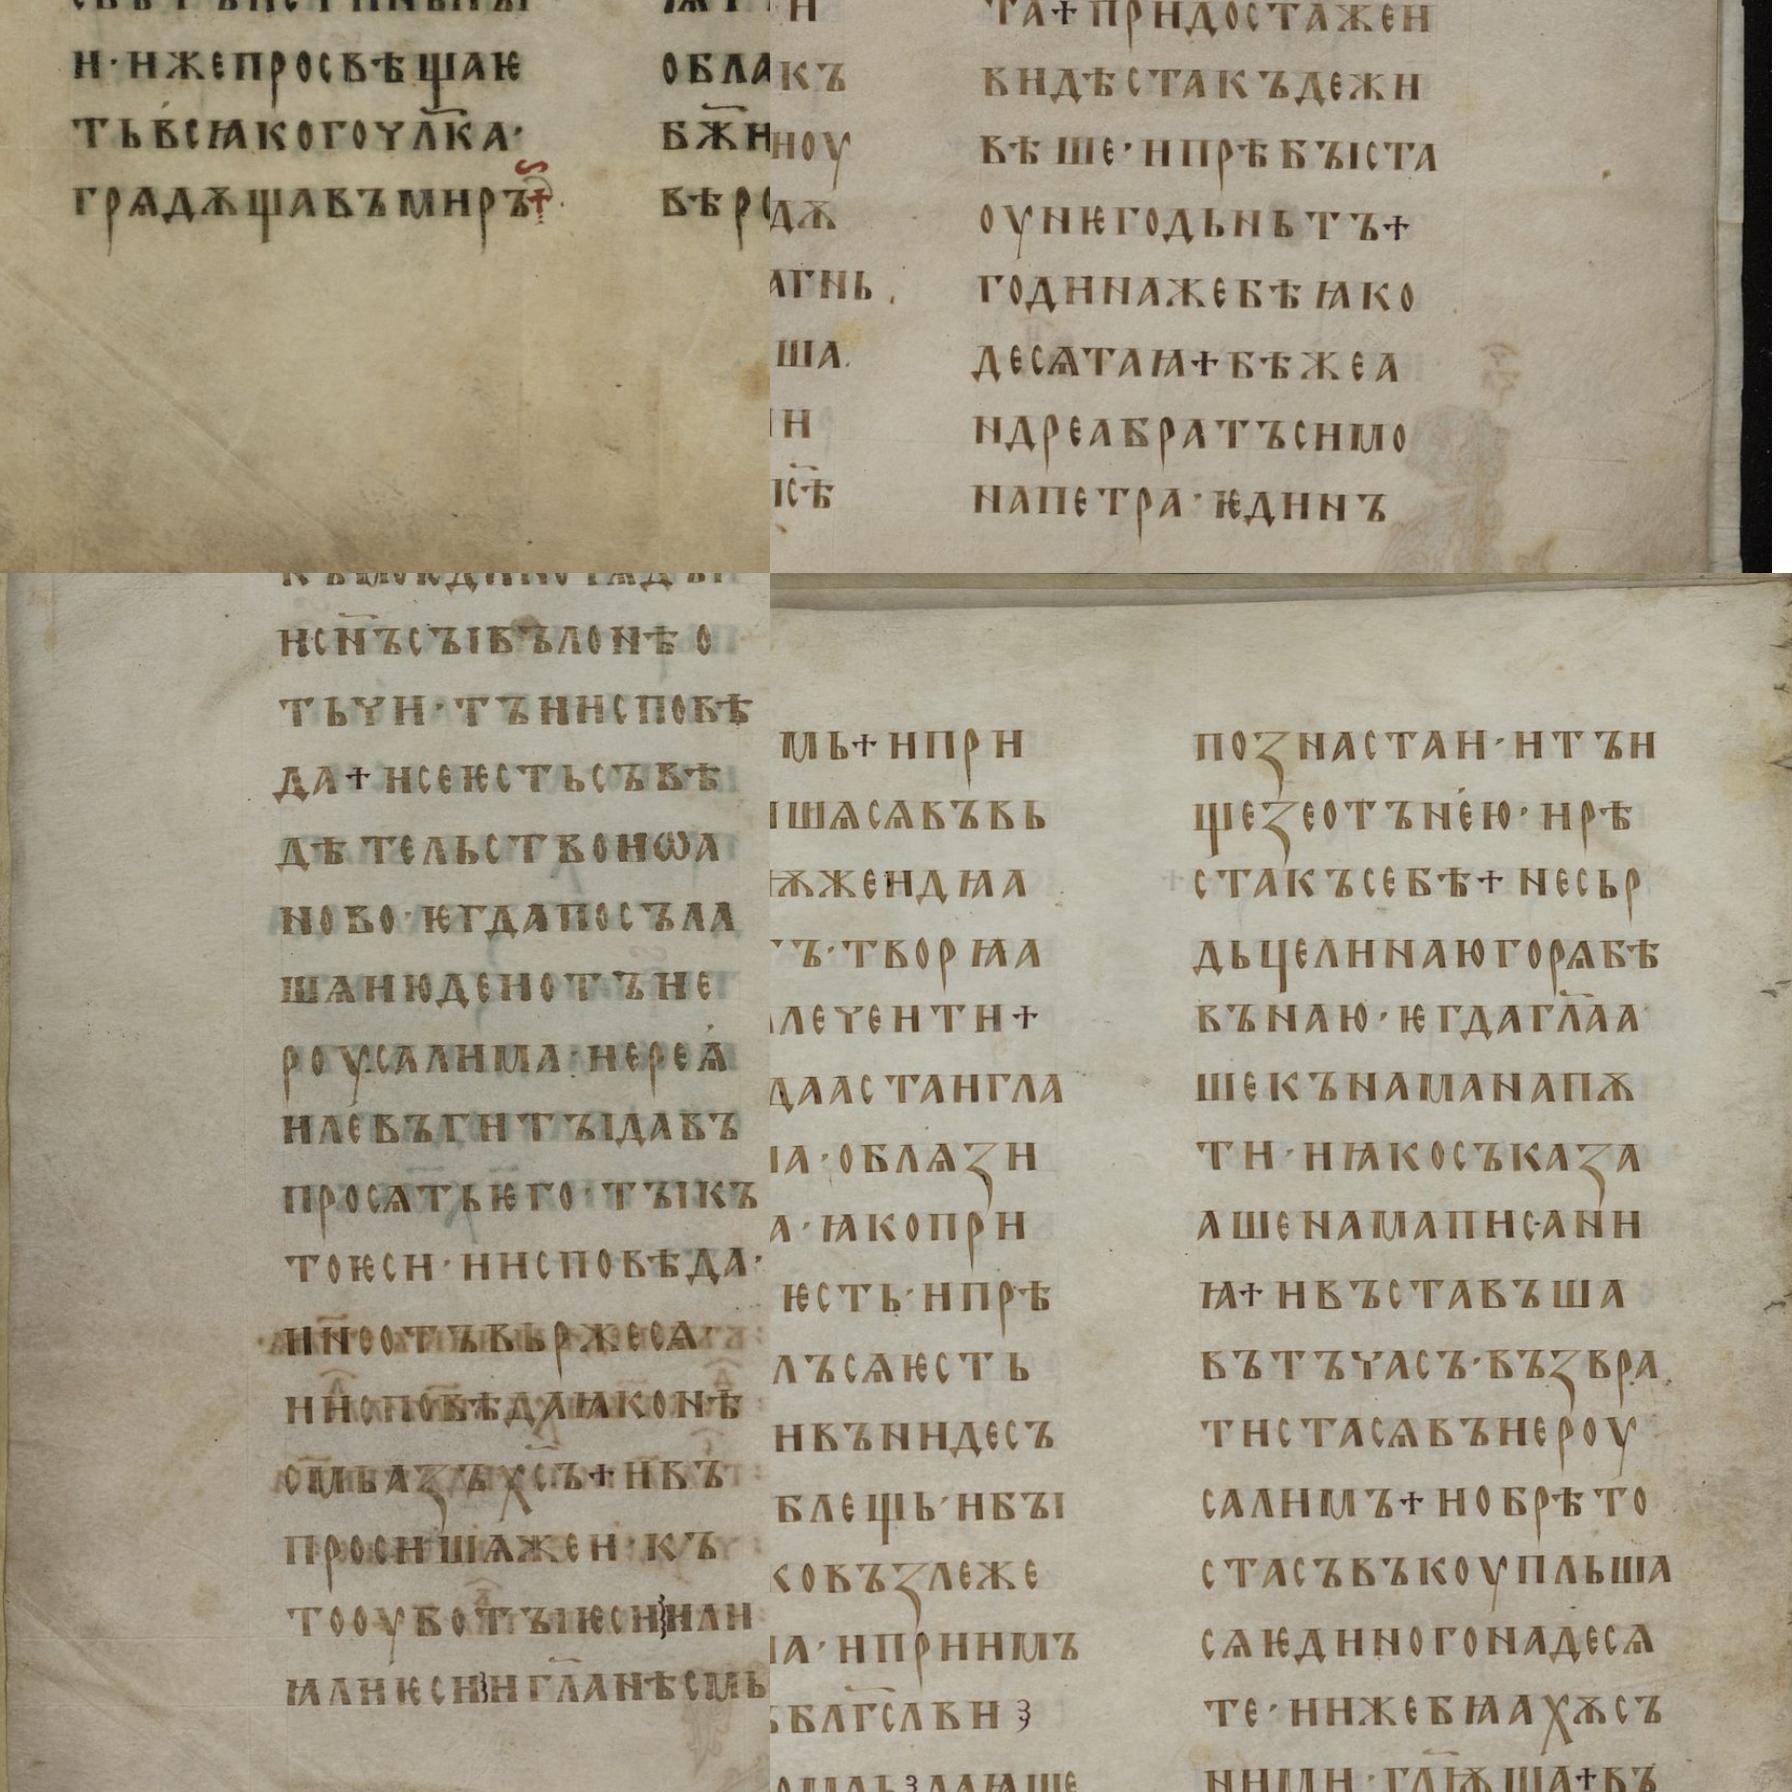 н·нжепросвѣщаѥ
тьвсꙗкогоꙋл҃ка·
грѧдѫщавъмиръ
обла
бж҃н
вѣро
н
къ
ноу
дѫ
агнь
ша.
н
сѣ
та+придостажеи
видѣстакъдежи
вѣше·ипрѣбꙑста
оунѥгодьньтъ+
годинажебѣꙗко
десѧтаꙗ+бѣжеа
ндреабратъсимо
напетра·ѥдинъ
исн҃ъсꙑвълонѣо
тьчи·тъисповѣ
да+исеѥстьсъвѣ
дѣтельствоиѡа
ново·ѥгдапосъла
шѧиюдеиотъие
роусалима·иереѧ
илевъгитꙑдавъ
просѧтьѥго·тꙑкъ
тоѥси·исповѣда·
инеотъвьржесѧ·
исповѣдаꙗконѣ
смьазъхс҃ъ+ивъ
просишѧжеи·къ
тооуботꙑѥсиили
ꙗлиѥсиигл҃анѣсмь
мь+ипри
шѧсѧвъвь
ѫжеидꙗа
ъ·творꙗа
лечеити+
даастаигла
а·облѧзи
а·ꙗкопри
ѥсть·ипрѣ
лъсѧѥсть
ивъидесъ
блещь·ибꙑ
ковъзлеже
а·ипріимъ
благ҃слви
познастаи·итъи
щезеотънею·ирѣ
стакъсебѣ+несьр
дьцелинаюгорѧбѣ
вънаю·ѥгдагл҃аа
шекънаманапѫ
ти·иꙗкосъказа
ашенамаписани
ꙗ+ивъставъша
вътъчасъ·възвра
тистасѧвъиероу
салимъ+иобрѣто
стасъвъкоупльша
сѧѥдиногонадесѧ
те·иижебꙗахѫсъ
ними·гл҃ѭща+въ